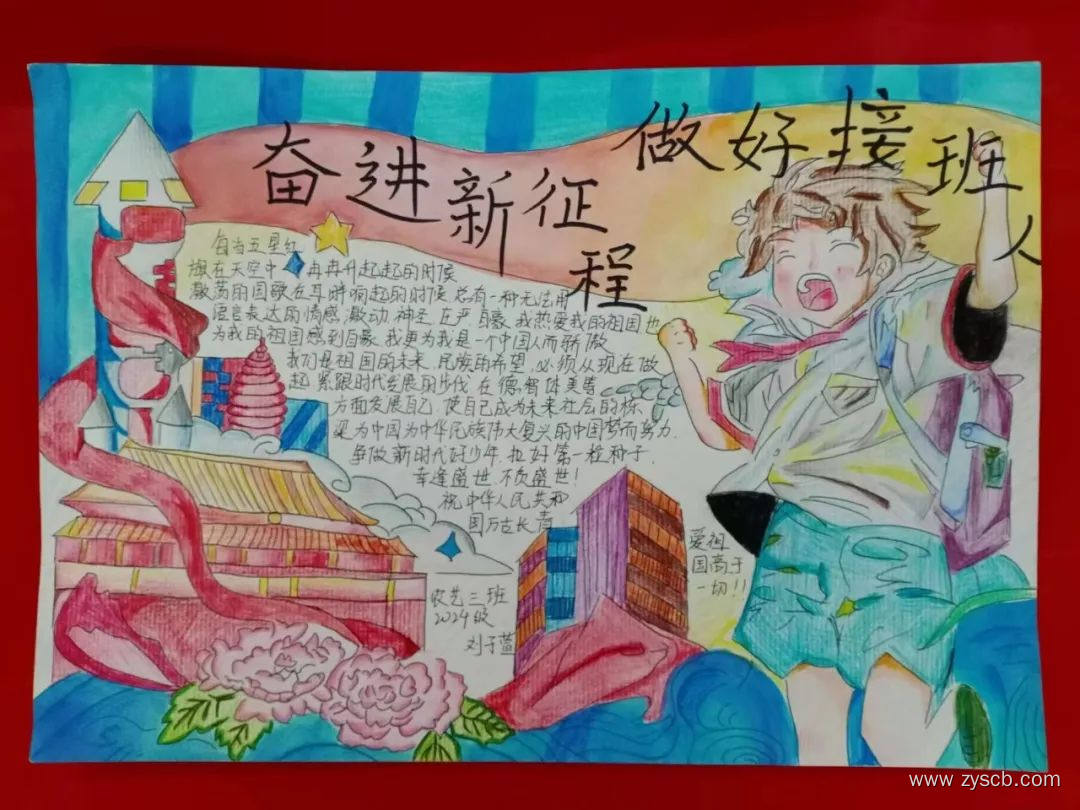 奋进新征程
做好接班人
每当五星红
旗在天空中冉冉升起起的时候
激荡的国歌在耳畔响起的时候总有一种无法用
语言表达的情感,激动 神圣 庄严 自豪,我热爱我的祖国也
为我的祖国感到自豪,我更为我是一个中国人而骄傲
我们是祖国的未来,民族的希望,必须从现在做
起 紧跟时代发展的步伐 在德智体美等
方面发展自己,使自己成为未来社会的栋、
梁为中国为中华民族伟大复兴的中国梦而努力.
争做新时代好少年,扣好第一粒种子.
幸逢盛世,不负盛世!
祝中华人民共和
国万古长青
爱祖
国高于
一切!!
农艺三班
2024级
刘子萱
www.zyscb.com